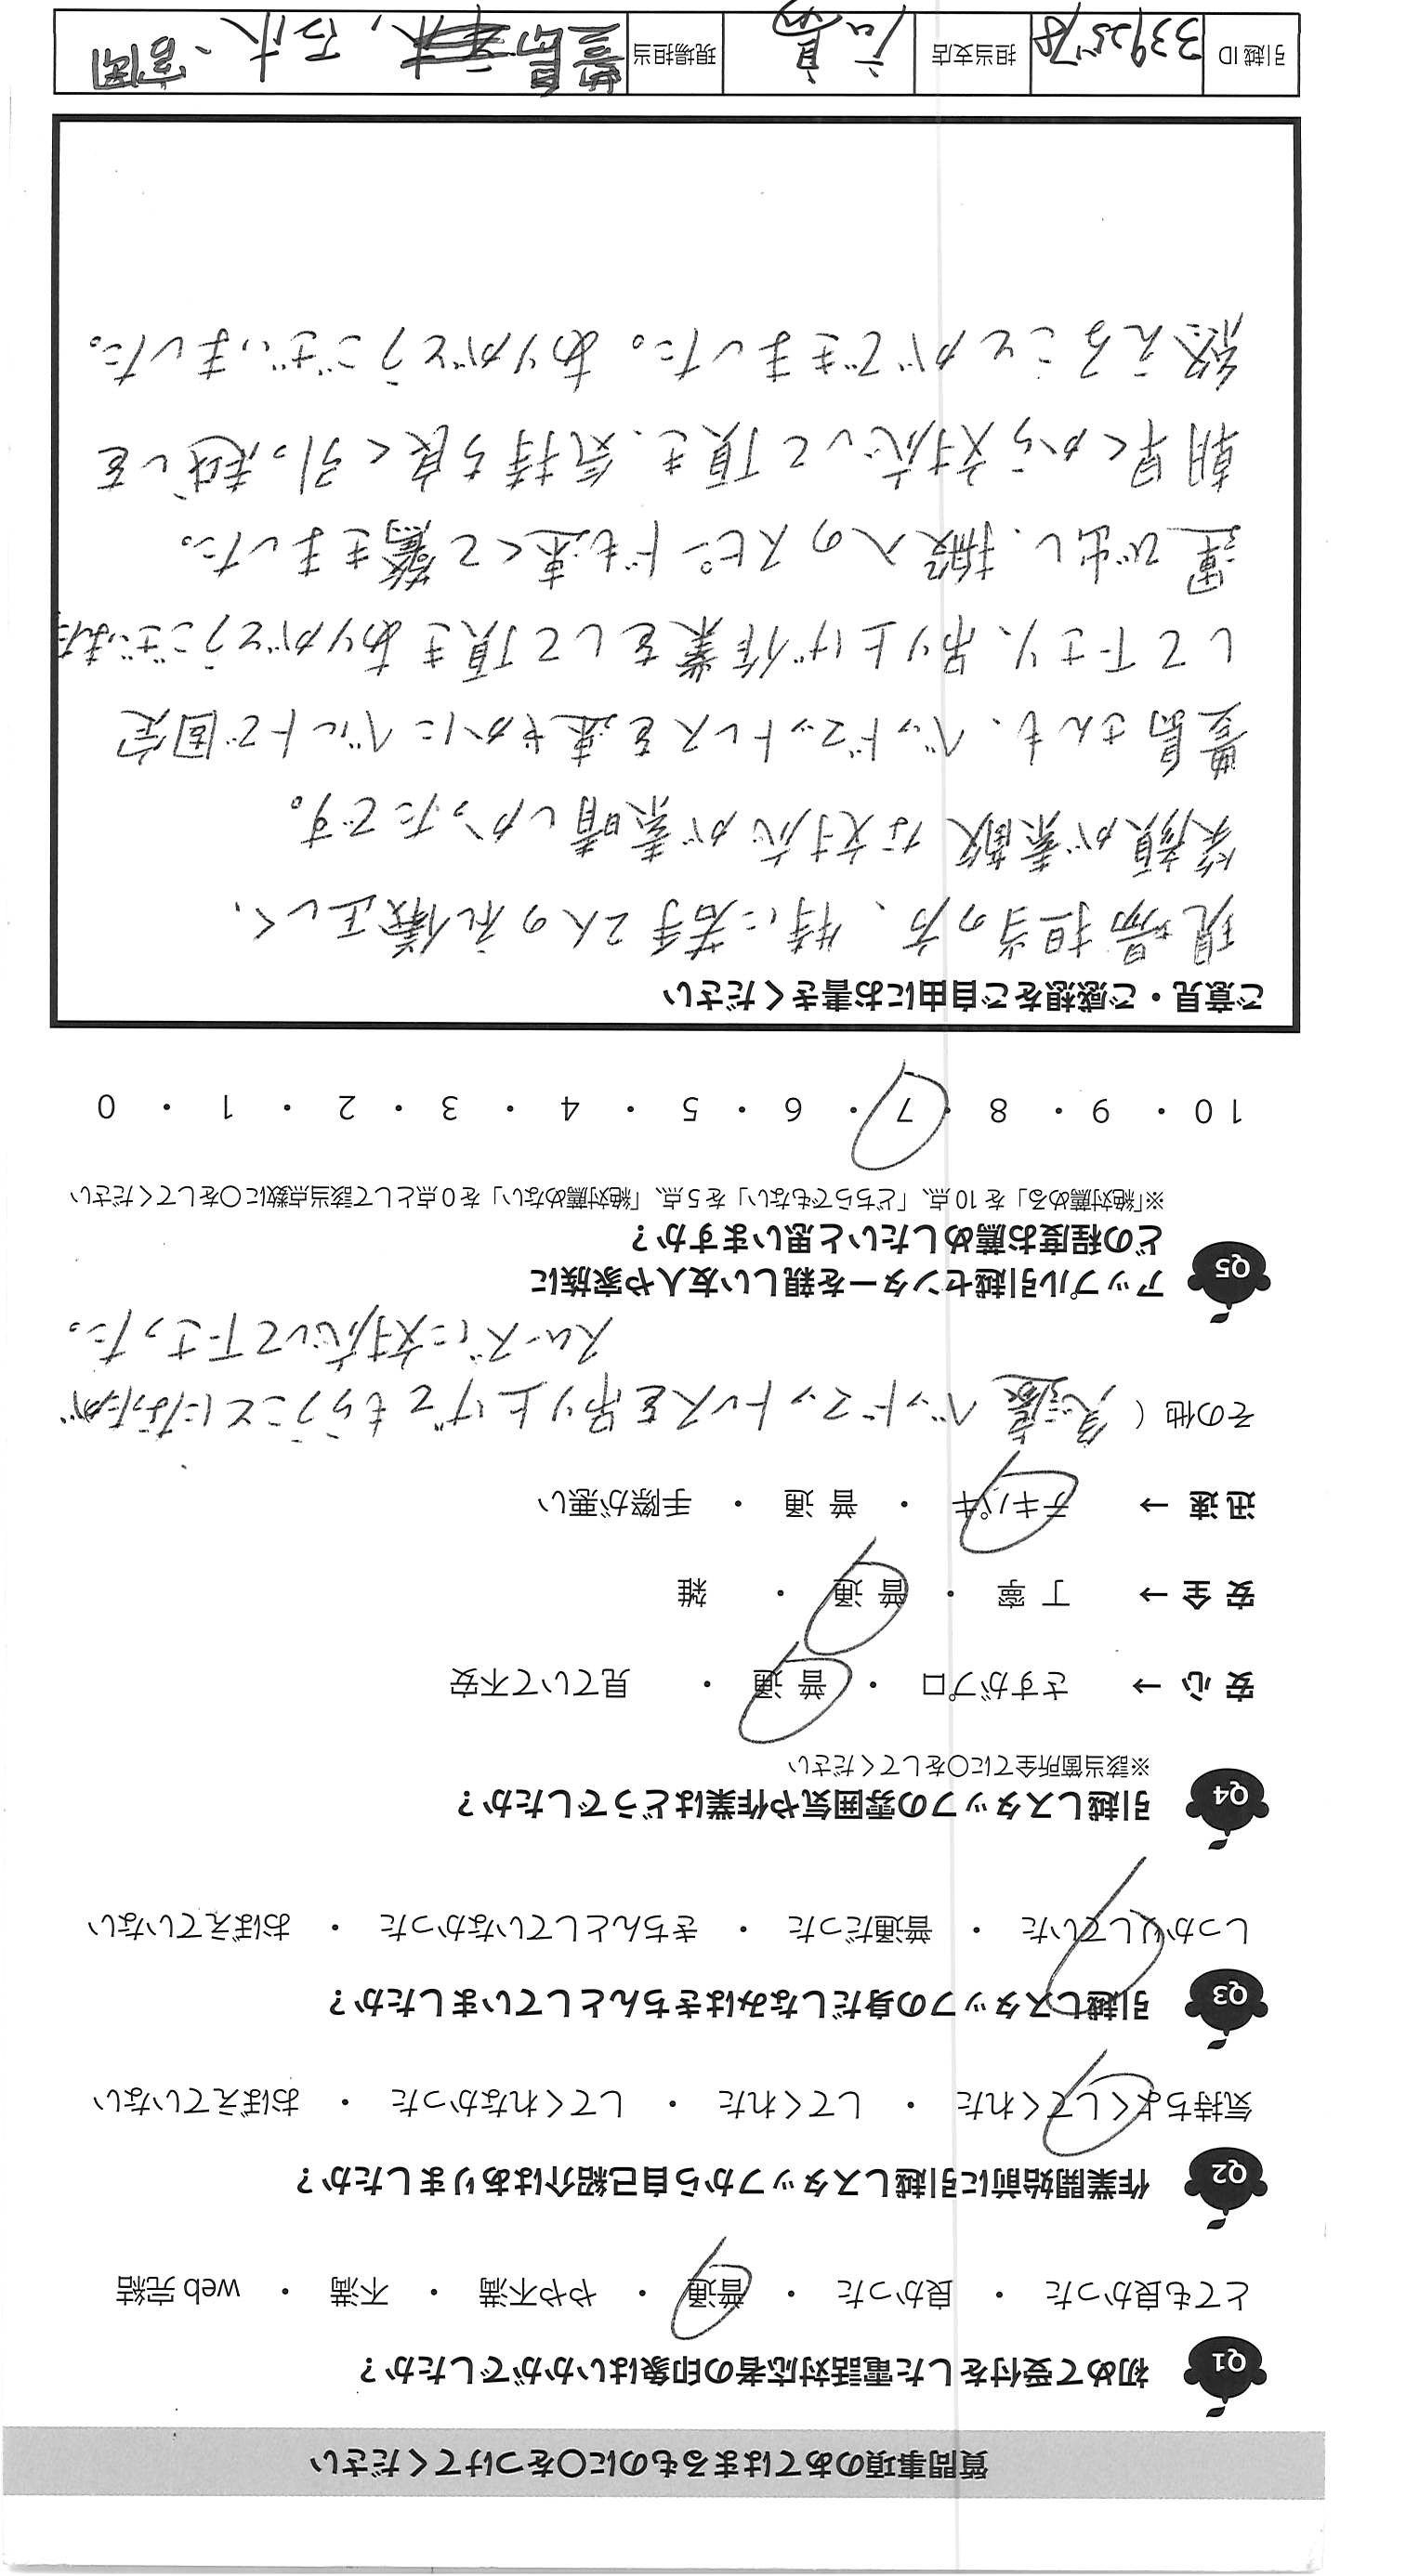 質問事項のあてはまるものに○をつけてください
Q1 初めて受付をした電話対応者の印象はいかがでしたか？
とても良かった ・ 良かった ・ 普通 ・ やや不満 ・ 不満 ・ web 完結
Q2 作業開始前に引越しスタッフから自己紹介はありましたか？
気持ちよくしてくれた ・ してくれた ・ してくれなかった ・ おぼえていない
Q3 引越しスタッフの身だしなみはきちんとしていましたか？
しっかりしていた ・ 普通だった ・ きちんとしていなかった ・ おぼえていない
Q4 引越しスタッフの雰囲気や作業はどうでしたか？
※該当箇所全てに○をしてください
安 心 → さすがプロ ・ 普 通 ・ 見ていて不安
安 全 → 丁 寧 ・ 普 通 ・ 雑
迅 速 → テキパキ ・ 普 通 ・ 手際が悪い
その他（ 急遽 ベッドマットレスを吊り上げてもらうことになったが
スムーズに対応して下さった。
Q5 アップル引越センターを親しい友人や家族に
どの程度お薦めしたいと思いますか？
※「絶対薦める」を 10 点、「どちらでもない」を 5 点、「絶対薦めない」を 0 点として該当点数に○をしてください
10 ・ 9 ・ 8 ・ 7 ・ 6 ・ 5 ・ 4 ・ 3 ・ 2 ・ 1 ・ 0
ご意見・ご感想をご自由にお書きください
現場担当の方、特に若手2人の礼儀正しく、
笑顔が素敵な対応が素晴しかったです。
豊島さんも、ベッドマットレスを速やかにベルトで固定
して下さり、吊り上げ作業をして頂きありがとうございました
運び出し、搬入のスピードも速くて驚きました。
朝早くから対応して頂き、気持ち良く引っ越しを
終えることができました。ありがとうございました。
引越 ID 33925578 担当支店 現場担当 豊島 石水、富岡